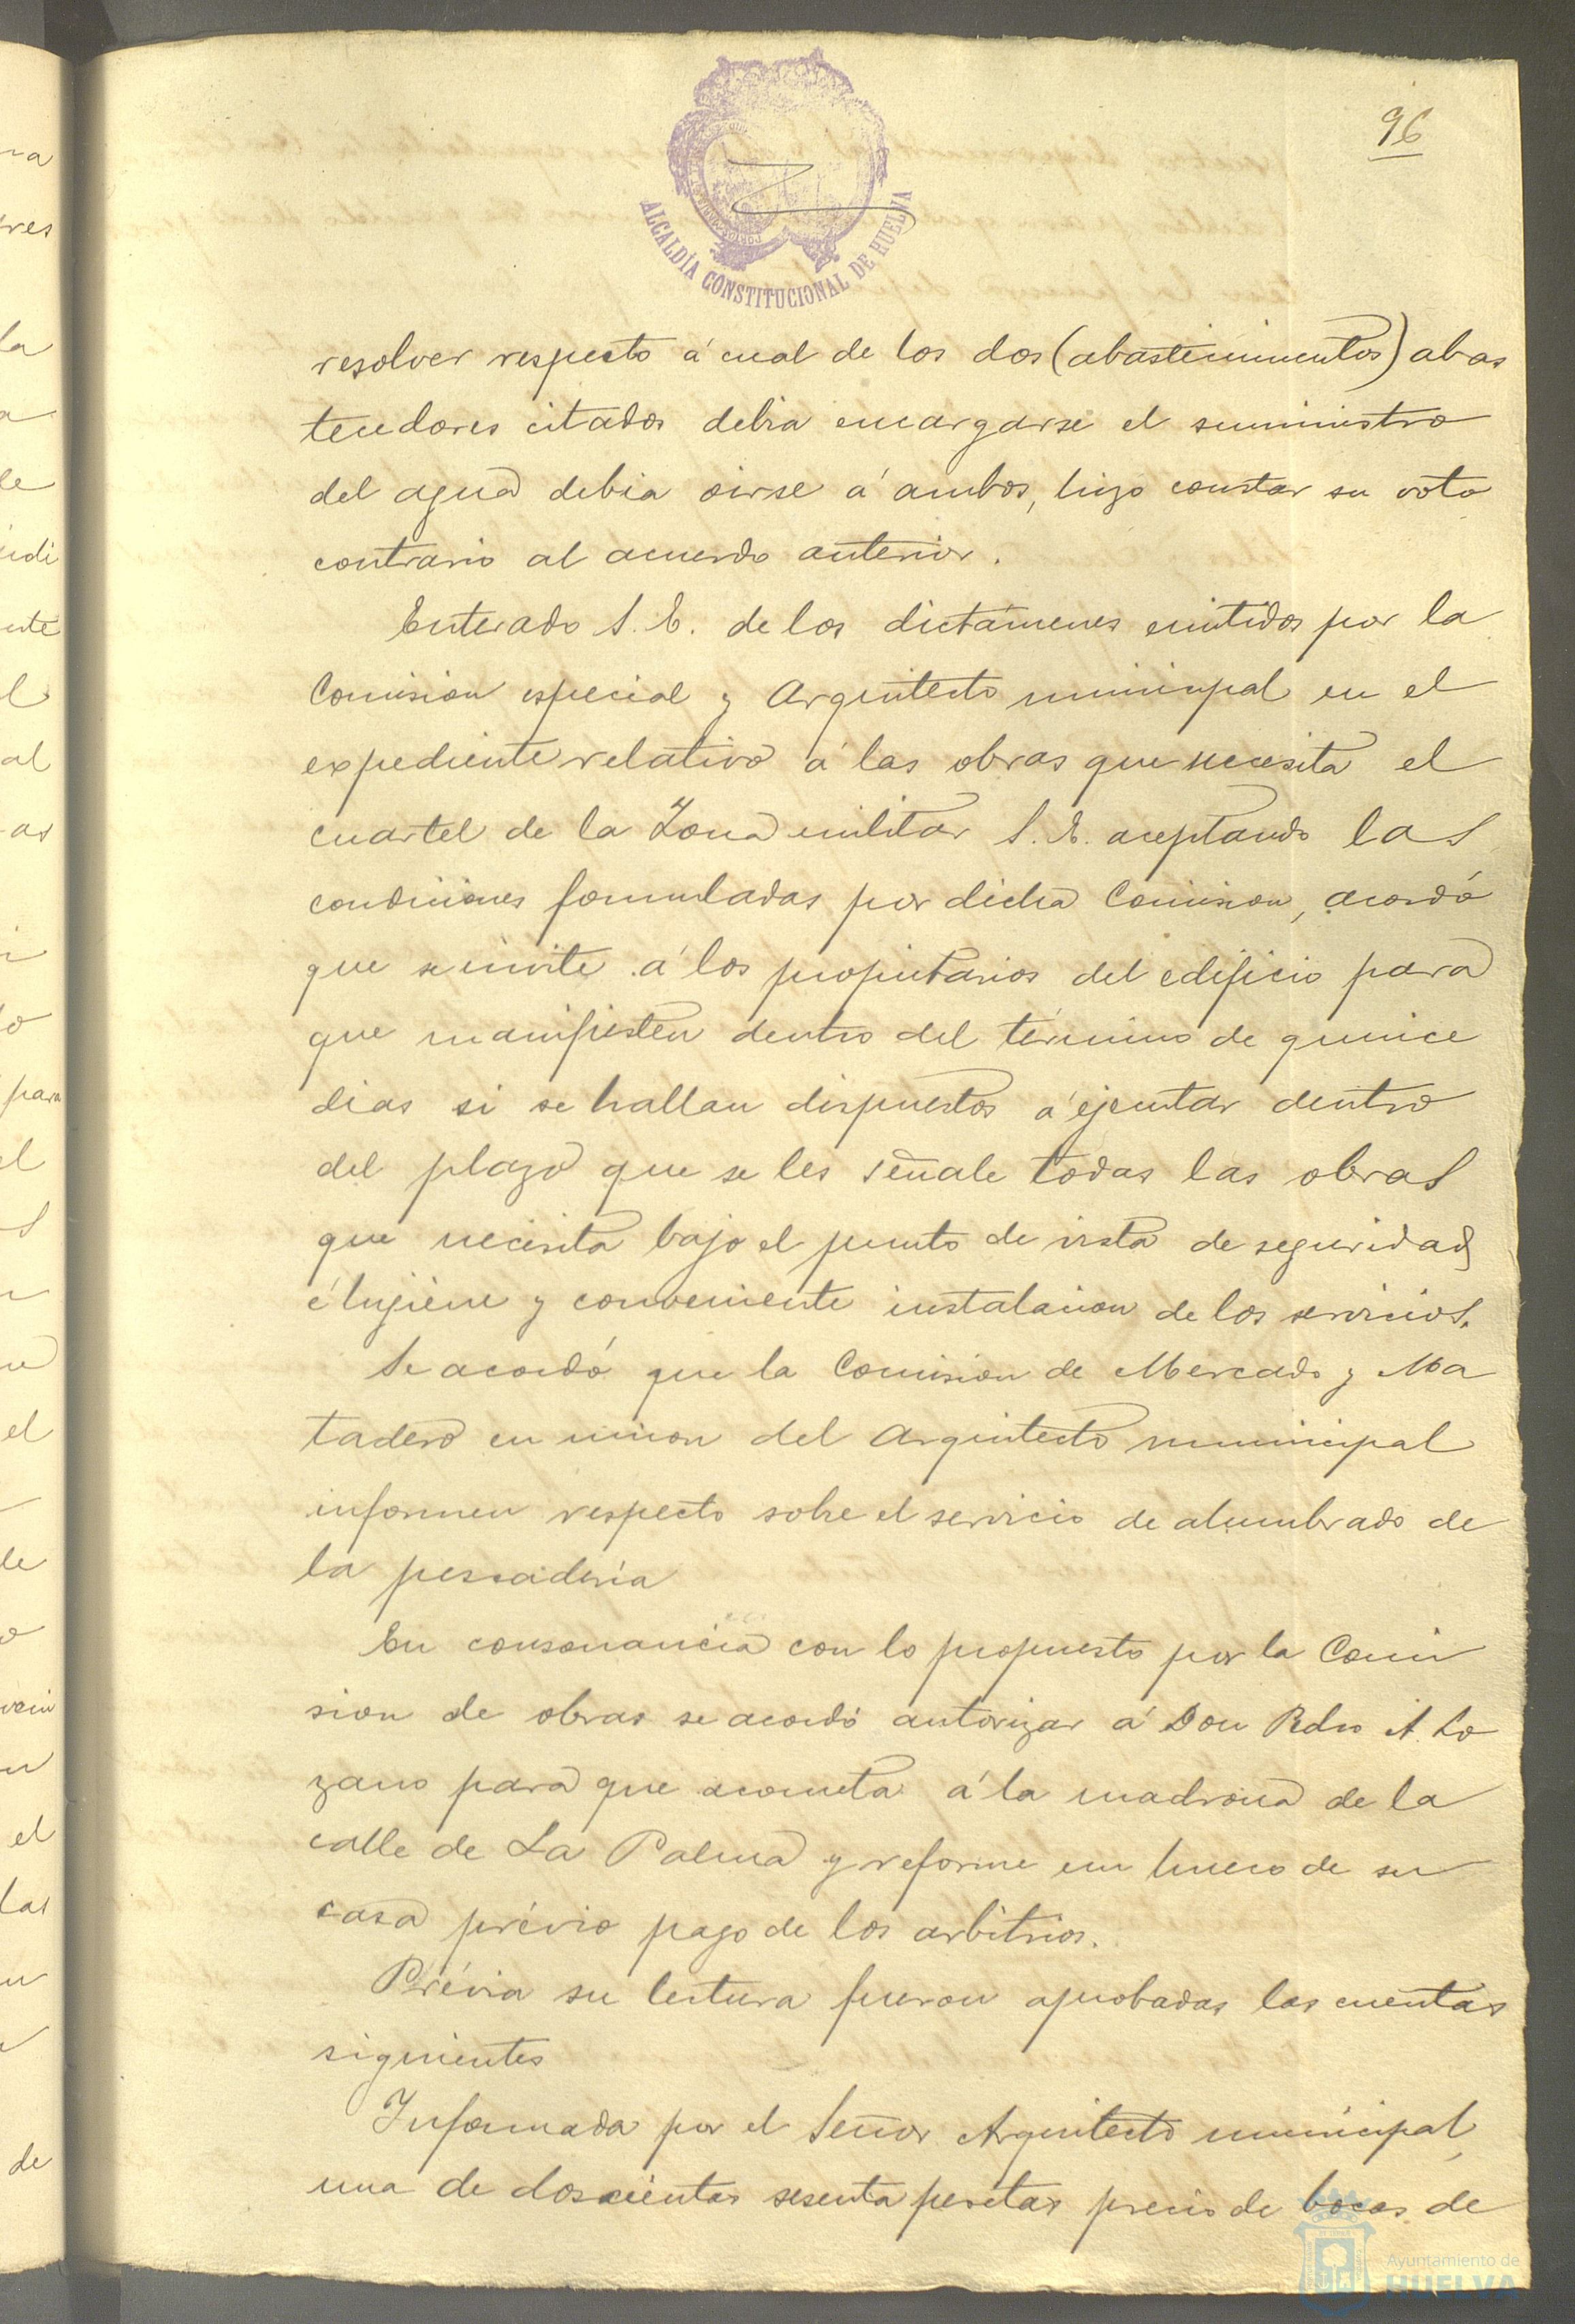 96
ALCALDÍA CONSTITUCIONAL DE HUELVA
resolver respecto á cual de los dos (abastecimientos) abas
tecedores citados debia encargarse el suministro
del agua debia oirse á ambos, hizo constar su voto
contrario al acuerdo anterior.
Enterado S. E. de los dictámenes emitidos por la
Comision especial y Arquitecto municipal en el
expediente relativo á las obras que necesita el
cuartel de la Zona militar S. E. aceptando las
condiciones formuladas por dicha Comision, acordó
que se invite á los propietarios del edificio para
que manifiesten dentro del término de quince
dias si se hallan dispuestos á ejecutar dentro
del plazo que se les señale todas las obras
que necesita bajo el punto de vista de seguridad
é hijiene y conveniente instalacion de los servicios.
Se acordó que la Comision de Mercado y Ma
tadero en union del Arquitecto municipal
informen respecto sobre el servicio de alumbrado de
la pescaderia
En consonancia con lo propuesto por la Comi
sion de obras se acordó autorizar á Don Pedro A. Lo
zano para que acometa á la madrona de la
calle de La Palma y reforme un hueco de su
casa prévio pago de los arbitrios.
Prévia su lectura fueron aprobadas las cuentas
siguientes
Informada por el Señor Arquitecto municipal
una de doscientas sesenta pesetas precio de bocas de
Ayuntamiento de
HUELVA